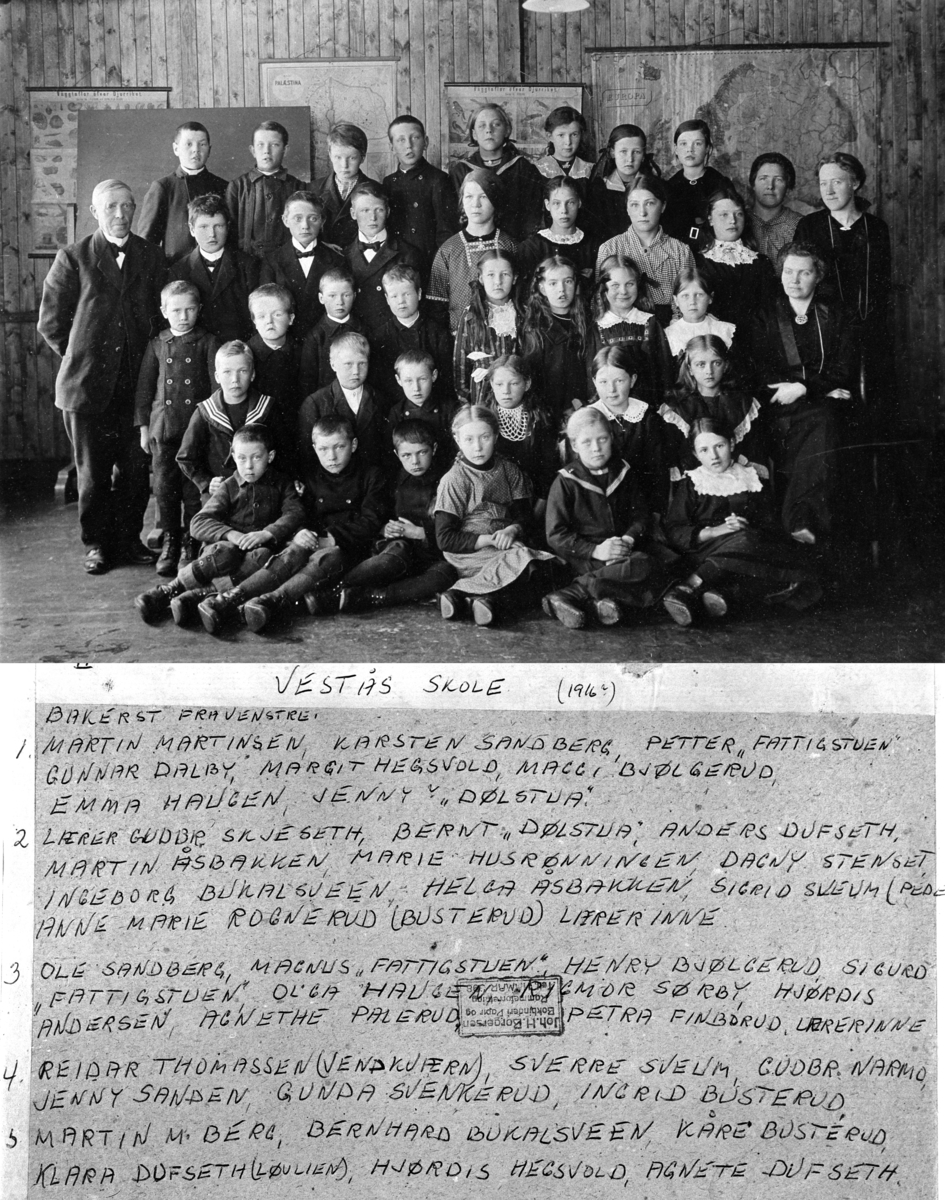 Vægtavler öfver Djurriket.
PALÆSTINA
Vægtavler öfver Djurriket.
EUROPA
VESTÅS SKOLE (1916?)
BAKERST FRA VENSTRE.
1. MARTIN MARTINSEN, KARSTEN SANDBERG, PETTER „FATTIGSTUEN"
GUNNAR DALBY, MARGIT HEGSVOLD, MAGGI BJØLGERUD,
EMMA HAUGEN, JENNY „DØLSTUA".
2 LÆRER GUDBR. SKJESETH, BERNT „DØLSTUA", ANDERS DUFSETH,
MARTIN ÅSBAKKEN, MARIE HUSRØNNINGEN, DAGNY STENSET,
INGEBORG BUKALSVEEN, HELGA ÅSBAKKEN, SIGRID SVEUM (PEDE
ANNE MARIE ROGNERUD (BUSTERUD) LÆRERINNE
3 OLE SANDBERG, MAGNUS „FATTIGSTUEN", HENRY BJØLGERUD, SIGURD
„FATTIGSTUEN", OLGA HAUGE GMOR SØRBY, HJØRDIS
ANDERSEN, AGNETHE PALERUD PETRA FINBORUD, LÆRERINNE
Joh. H. Borgersen
Bokbinderi Papir og
Rammeforretning
HAMAR
4. REIDAR THOMASSEN (VENDKVÆRN), SVERRE SVEUM, GUDBR. NARMO,
JENNY SANDEN, GUNDA SVENKERUD, INGRID BUSTERUD,
5 MARTIN M. BERG, BERNHARD BUKALSVEEN, KÅRE BUSTERUD,
KLARA DUFSETH (LØVLIEN), HJØRDIS HEGSVOLD, AGNETE DUFSETH.